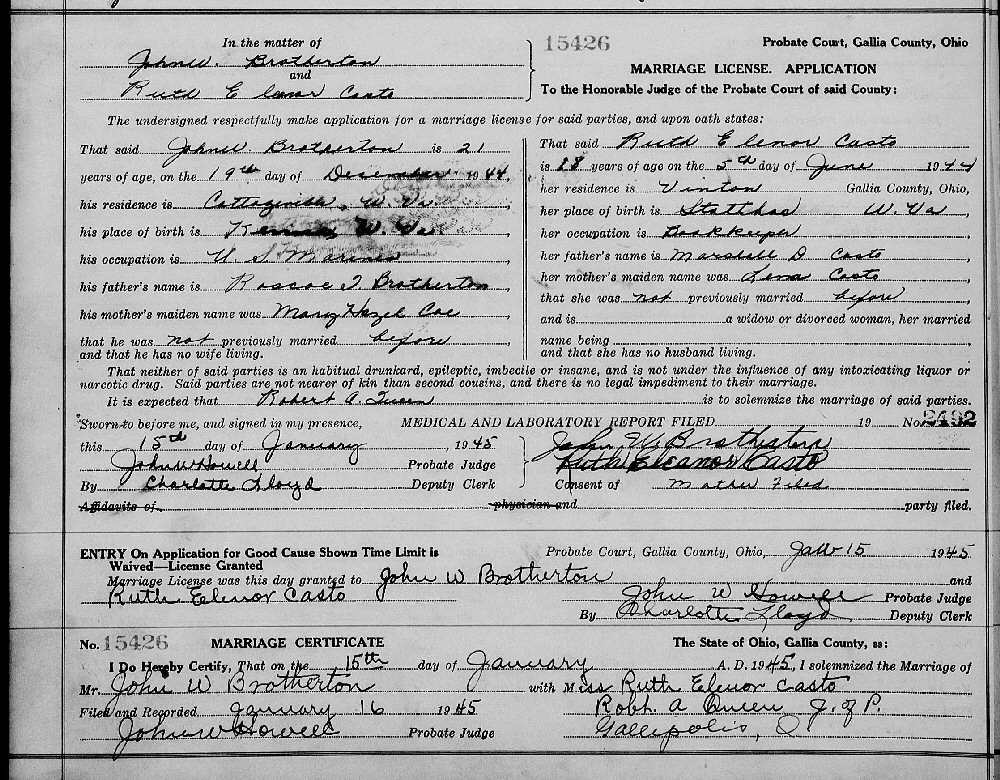 In the matter of
John W. Brotherton
and
Ruth Elenor Casto
15426 Probate Court, Gallia County, Ohio
MARRIAGE LICENSE. APPLICATION
To the Honorable Judge of the Probate Court of said County:
The undersigned respectfully make application for a marriage license for said parties, and upon oath states:
That said John W Brotherton is 21
years of age, on the 19th day of December 1944,
his residence is Cottageville, W. Va.
his place of birth is W. Va
his occupation is U S Marines
his father's name is Roscoe T. Brotherton
his mother's maiden name was Mary Hazel Coe
that he was not previously married before
and that he has no wife living.
That said Ruth Elenor Casto
is 18 years of age on the 5th day of June 1944
her residence is Vinton Gallia County, Ohio,
her place of birth is W. Va
her occupation is Bookkeeper
her father's name is Marshall D. Casto
her mother's maiden name was Lena Casto
that she was not previously married before
and is a widow or divorced woman, her married
name being
and that she has no husband living.
That neither of said parties is an habitual drunkard, epileptic, imbecile or insane, and is not under the influence of any intoxicating liquor or
narcotic drug. Said parties are not nearer of kin than second cousins, and there is no legal impediment to their marriage.
It is expected that Robert A. Queen is to solemnize the marriage of said parties.
Sworn to before me, and signed in my presence, MEDICAL AND LABORATORY REPORT FILED 19 No. 2492
this 15th day of January, 1945
John W Howell Probate Judge
By Charlotte Lloyd Deputy Clerk
John W Brotherton
Ruth Eleanor Casto
Consent of Mother Filed
Affidavits of physician and party filed.
ENTRY On Application for Good Cause Shown Time Limit is
Waived—License Granted
Probate Court, Gallia County, Ohio, Jan 15 1945
Marriage License was this day granted to John W Brotherton and
Ruth Elenor Casto
John W Howell Probate Judge
By Charlotte Lloyd Deputy Clerk
No. 15426 MARRIAGE CERTIFICATE The State of Ohio, Gallia County, ss:
I Do Hereby Certify, That on the 15th day of January A. D. 1945, I solemnized the Marriage of
Mr. John W Brotherton with Miss Ruth Elenor Casto
Filed and Recorded January 16 1945 Robt. A Queen J. of P.
John W Howell Probate Judge Gallipolis, O